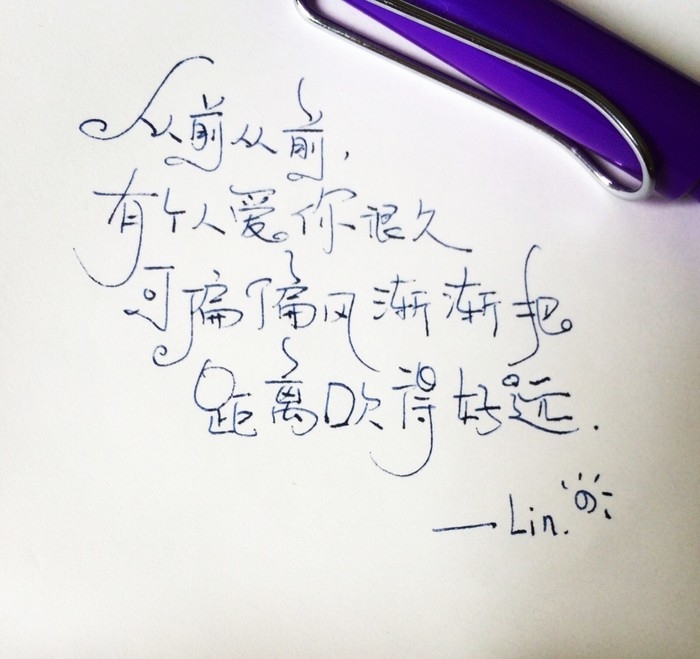 从前从前，
有个人爱你很久
可偏偏风渐渐把
距离吹得好远.
—Lin.